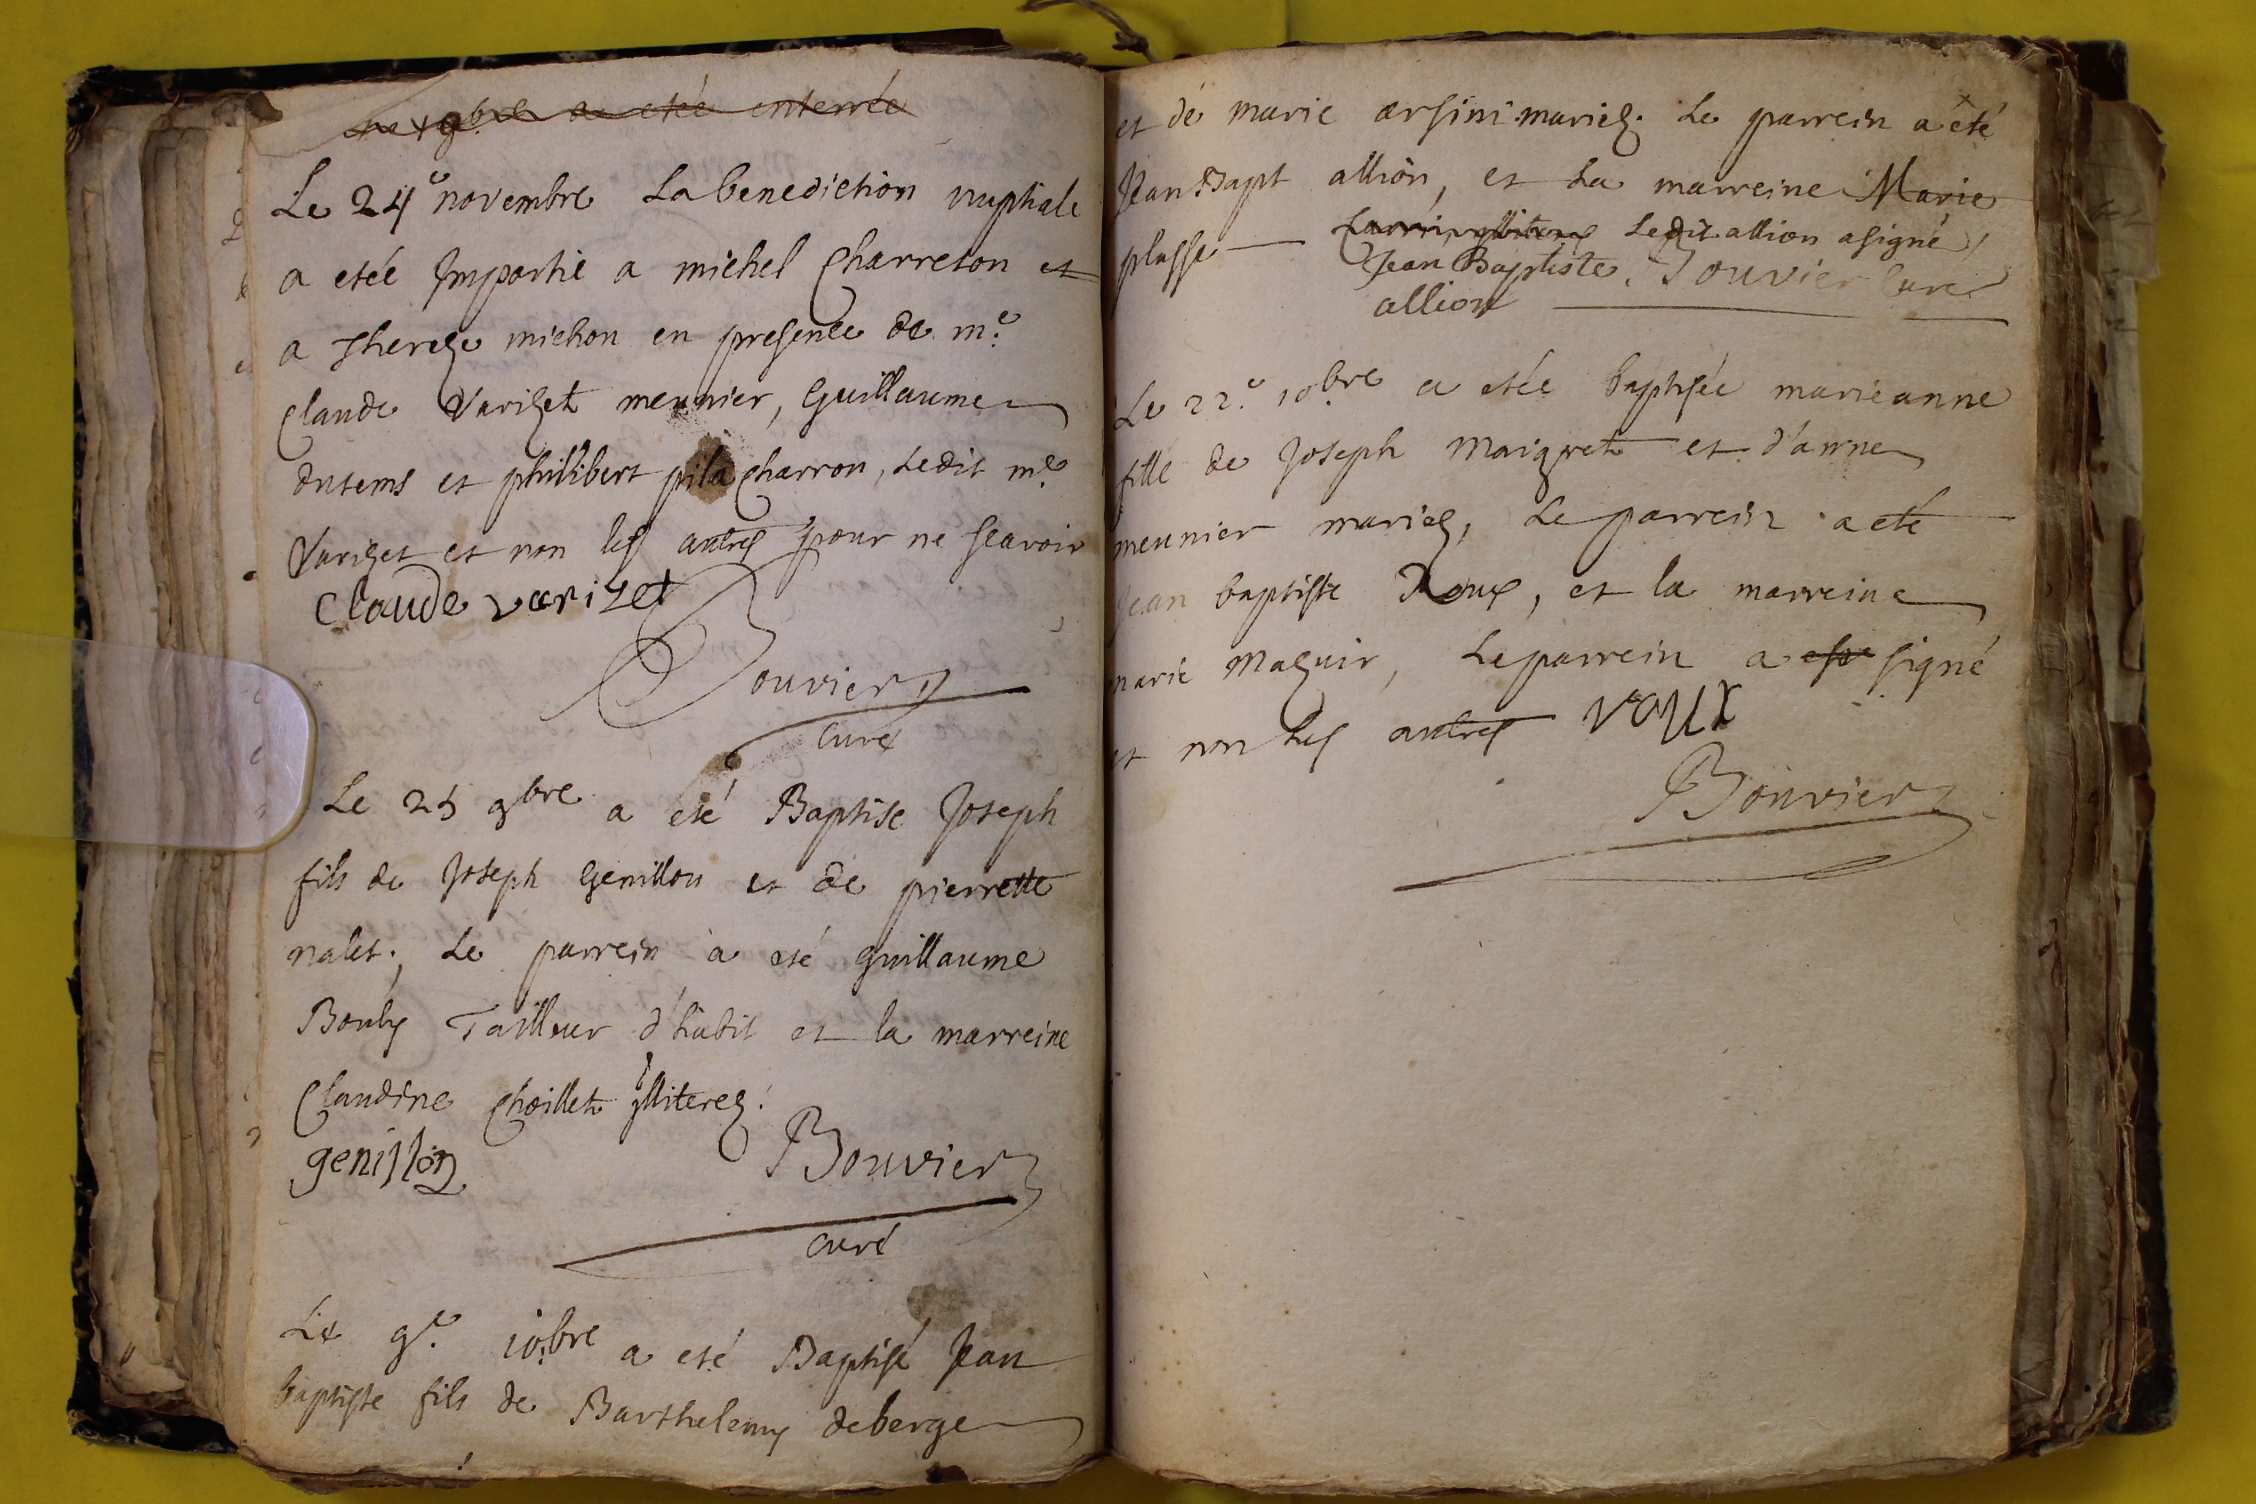 9bre a etée enterrée
Le 24e novembre La benediction nuptiale
a etée Impartie a michel Charreton et
a Thereze michon en presence de me.
Claude Varizet meunier, Guillaume
dutems et philibert pila Charron, Ledit me.
Varizet et non les autres pour ne scavoir
Claude varizet
Bouvier
curé
Le 25 9bre a eté Baptise Joseph
fils de Joseph Genillon et de pierrette
nalet; Le parrein a eté guillaume
Bouly Tailleur d'habit et la marreine
Claudine Choillet illiterez.
genillon
Bouvier
curé
Le 9e. 10bre a eté Baptisé Jean
baptiste fils de Barthelemy deberge
et de marie arsini mariez. Le parrein a été
Jean Bapt allion, et La marreine Marie
plasse Ledit allion a signé,
Jean Baptiste Bouvier Curé
allion
Le 22e. 10bre a etée baptisée marieanne
fille de Joseph Maigret et d'anne
meunier mariez, Le parrein a eté
Jean baptiste Roux, et la marreine
marie Mazuir, Le parrein a signé
et non Les autres roux
Bouvier